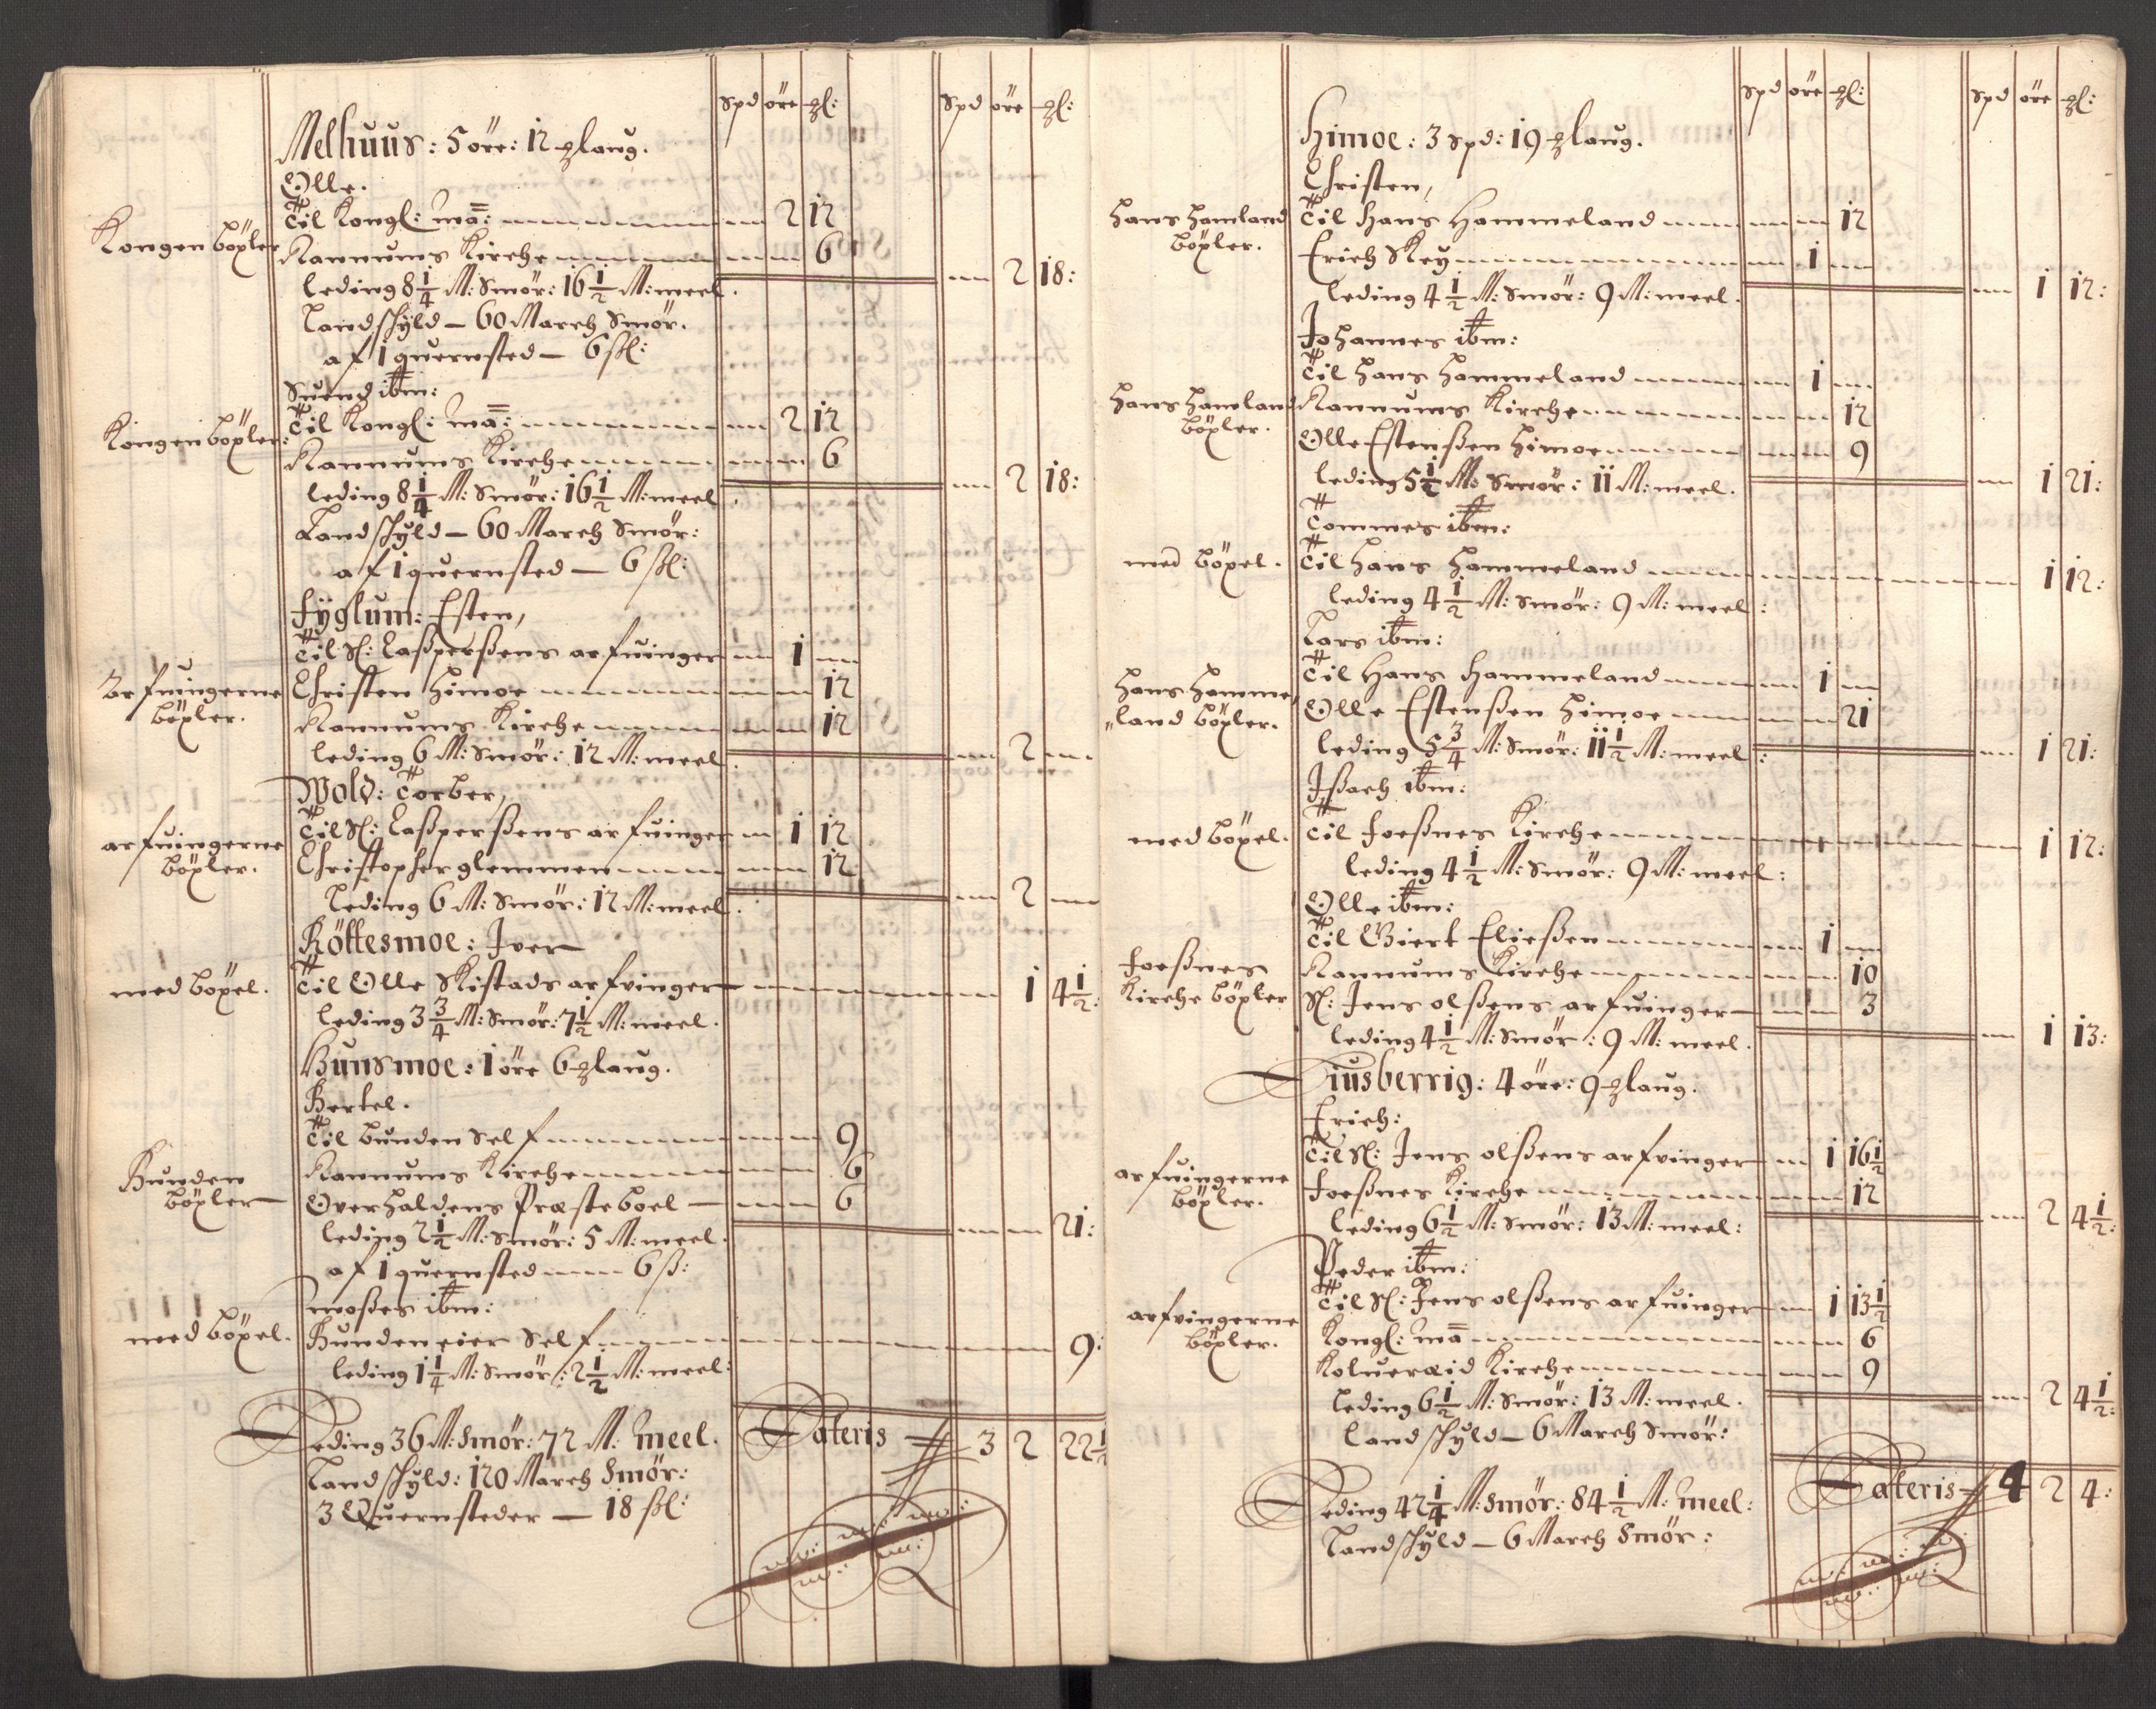 Spd öre ꝑl: Spd öre ꝑl:
Melhuus: 5 öre: 12 ꝑlaug.
Olle.
Kongen böxler Til Kongl: Maÿ: 2 12
Rannums Kirche 6
2 18:
leding 8 1/4 M: Smör: 16 1/2 M: meel.
Landschÿld – 60 March Smör.
af 1 quernsted – 6 ßl:
Suend ibm:
Kongen böxler: Til Kongl: Maÿ: 2 12
Rannums Kirche 6
2 18:
leding 8 1/4 M: Smör: 16 1/2 M: meel.
Landschÿld – 60 March Smör:
af 1 quernsted – 6 ßl:
Fÿglum: Esten,
Til Sl: Caßperßens arfuinger 1
Arfuingerne böxler. Christen Himoe 12
Rannums Kirche 12
2
leding 6 M: Smör: 12 M: meel.
Wold: Torber,
Til Sl: Caßperßens arfuinger 1 12
arfuingerne böxler. Christopher glemmen 12
2
leding 6 M: Smör: 12 M: meel.
Röttesmoe: Iver
med böxel. Til Olle Skistads arfvinger 1 4 1/2:
leding 3 3/4 M: Smör: 7 1/2 M: meel.
Hunsmoe: 1 öre 6 ꝑlaug.
Bertel.
Til bunden Self 9
Bunden böxler Rannums Kirche 6
Overhaldens Præsteboel – 6
21:
leding 2 1/2 M: Smör: 5 M: meel.
af 1 quernsted 6 ß:
Moßes ibm:
med böxel. Bunden eier Self 9:
leding 1 1/4 M: Smör: 2 1/2 M: meel:
Leding 36 M: Smör: 72 M: Meel. Lateris 3 2 22 1/2
Landschÿld: 120 March Smör:
3 Quernsteder – 18 ßl:
Spd öre ꝑl: Spd öre ꝑl:
Himoe: 3 Spd: 19 ꝑlaug.
Christen,
Hans Hamland böxler. Til Hans Hammeland 12
Erich Skey 1
1 12:
leding 4 1/2 M: Smör: 9 M: meel.
Johannes ibm:
Til Hans Hammeland 1
Hans Hamland böxler. Rannums Kirche 12
Olle Estenßen Himoe 9
1 21:
leding 5 1/2 M: Smör: 11 M: meel.
Tommes ibm:
med böxel. Til Hans Hammeland 1 12:
leding 4 1/2 M: Smör: 9 M: meel:
Lars ibm:
Til Hans Hammeland 1
Hans Hamme„ „land böxler. Olle Estenßen Himoe 21
1 21:
leding 5 3/4 M: Smör: 11 1/2 M: meel:
Ißach ibm:
med böxel. Til Foeßnes Kirche 1 12:
leding 4 1/2 M: Smör: 9 M: meel:
Olle ibm:
Til Giert Eließen 1
Foeßnes Kirche böxler Rannums Kirche 10
Sl: Jens olßens arfuinger 3
1 13:
leding 4 1/2 M: Smör: 9 M: meel.
Diusberrig: 4 öre: 9 ꝑlaug.
Erich:
Til Sl: Jens olßens arfvinger 1 16 1/2
arfuingerne böxler. Foeßnes Kirche 12
2 4 1/2:
leding 6 1/2 M: Smör: 13 M: meel:
Peder ibm:
Til Sl: Jens olßens arfuinger 1 13 1/2
arfvingerne böxler. Kongl: Maÿ 6
Kolueræid Kirche 9
2 4 1/2:
leding 6 1/2 M: Smör: 13 M: meel.
Landschÿld – 6 March Smör:
Leding 42 1/4 M: Smör: 84 1/2 M: Meel: Lateris 4 2 4:
Landschÿld – 6 March Smör: